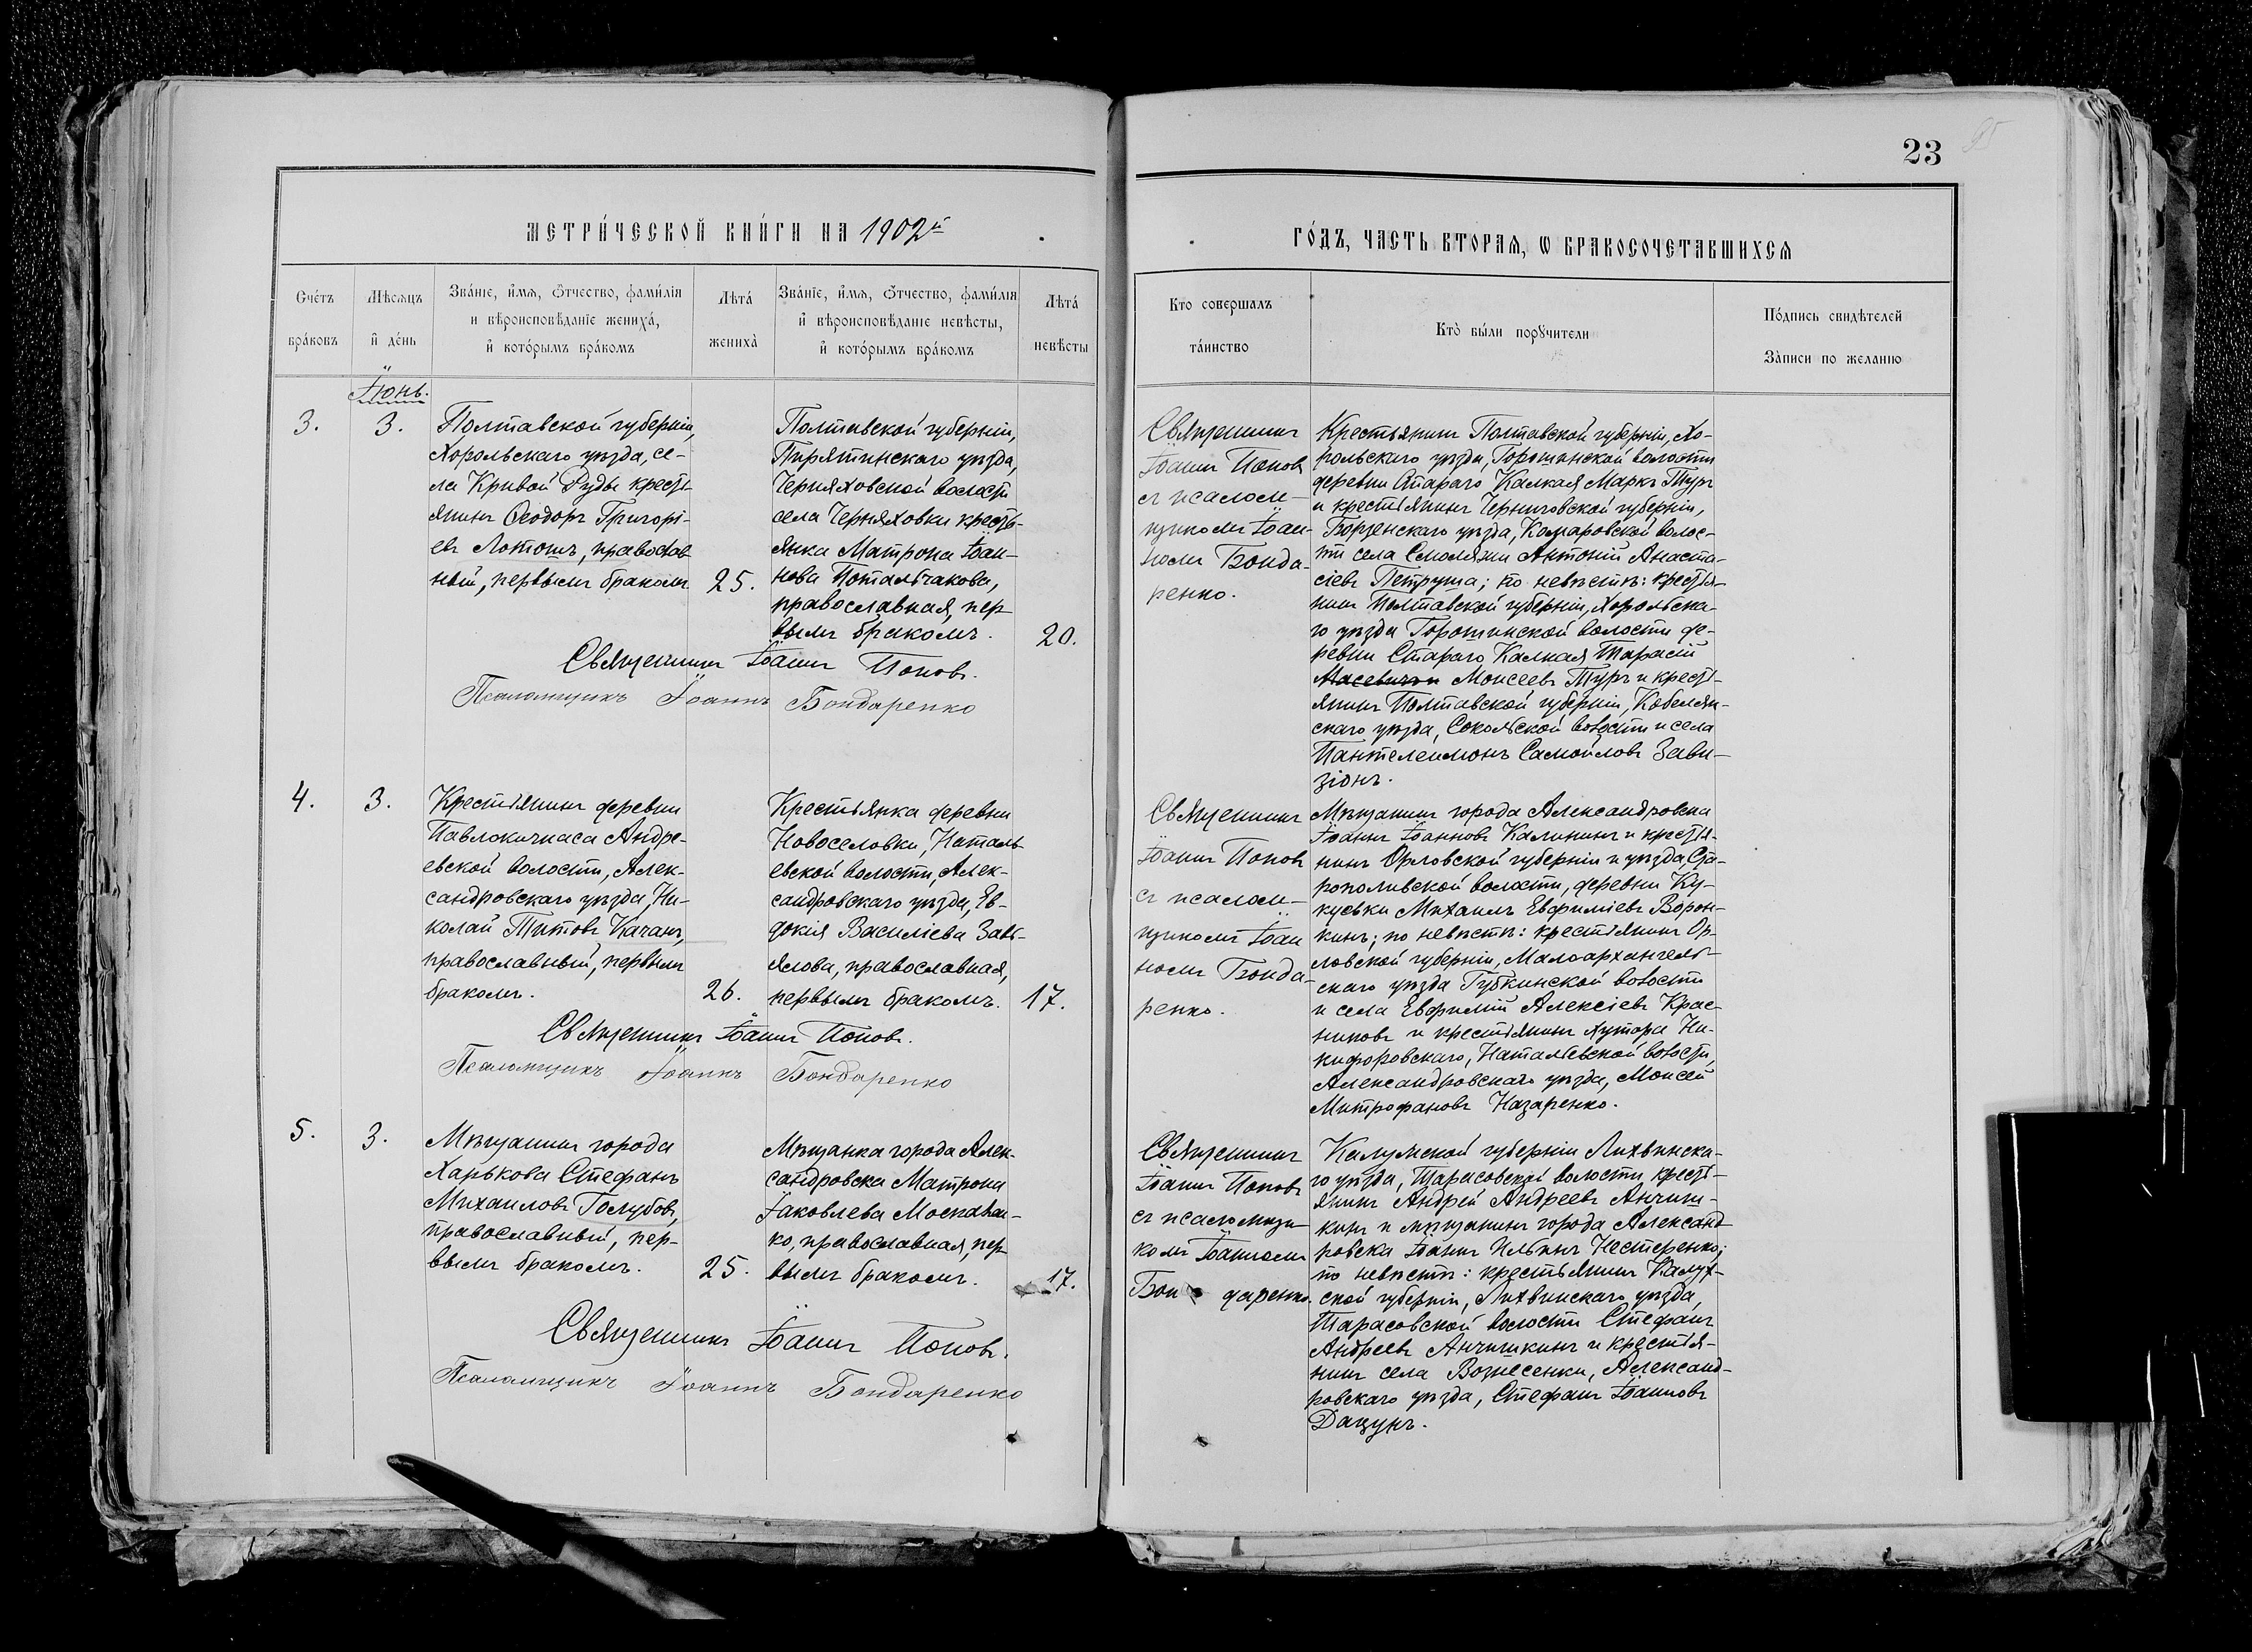 23
95
МЕТРИ́ЧЕСКОЙ КНИ́ГИ НА 1902й
ГО́ДЪ, ЧАСТЬ ВТОРАѦ, Ѡ БРАКОСОЧЕТАВШИХСѦ
Счéтъ
бра́ковъ
Мѣсѧцъ
и́ де́нь
Зва́нїе, и́мѧ, ѻ́тчество, фами́лїѧ
и вѣроисповѣ́данїе жениха̀,
и́ кото́рымъ бра́комъ
Лѣта̀
жениха̀
Зва́нїе, и́мѧ, ѻ́тчество, фами́лїѧ
и́ вѣроисповѣ́данїе невѣ́сты,
и́ кото́рымъ бра́комъ
Лѣта̀
невѣ́сты
Кто совершалъ
та́инство
Кто̀ бы́ли порꙋчители
По́дпись свидѣ́телей
За̀писи по желанїю
Іюнь.
3.
3.
Полтавской губерніи,
Хорольскаго уѣзда, се-
ла Кривой Руды кресть-
янинъ Ѳеодоръ Григорі-
евъ Лотошъ, православ
ный, первымъ бракомъ
25.
Полтавской губерніи,
Пирятинскаго уѣзда,
Черняховской волости
села Черняховки кресть-
янка Матрона Іоан-
нова Потальчакова,
православная, пер-
вымъ бракомъ.
20.
Священникъ Іоаннъ Поповъ.
Псаломщикъ Іоаннъ Бондаренко
Священникъ
Іоаннъ Поповъ
съ псалом-
щикомъ Іоан-
номъ Бонда-
ренко.
Крестьянинъ Полтавской губерніи, Хо-
рольскаго уѣзда, Горошинской волости
деревни Стараго Калкая Маркъ Туръ
и крестьянинъ Черниговской губерніи,
Борзенскаго уѣзда, Комаровской волос-
ти села Смоляжи Антоній Анаста-
сіевъ Петруша; по невѣстѣ: крестья-
нинъ Полтавской губерніи, Хорольска-
го уѣзда Горошинской волости де-
ревни Стараго Калкая Тарасій
Моисеевъ Туръ и кресть-
янинъ Полтавской губерніи, Кобеляк-
скаго уѣзда, Сокольской волости и села
Пантелеимонъ Самойловъ Зави-
зіонъ.
4.
3.
Крестьянинъ деревни
Павлокичкаса Андре-
евской волости, Алек-
сандровскаго уѣзда, Ни-
колай Титовъ Качанъ,
православный, первымъ
бракомъ.
26.
Крестьянка деревни
Новоселовки, Наталь-
евской волости, Алек-
сандровскаго уѣзда, Ев-
докія Василіева Завь-
ялова, православная,
первымъ бракомъ.
17.
Священникъ Іоаннъ Поповъ.
Псаломщикъ Іоаннъ Бондаренко
Священникъ
Іоаннъ Поповъ
съ псалом-
щикомъ Іоан
номъ Бонда-
ренко.
Мѣщанинъ города Александровска
Іоаннъ Іоанновъ Калининъ и крестья-
нинъ Орловской губерніи и уѣзда, Ста-
рополивской волости, деревни Ку-
куевки Михаилъ Евфиміевъ Ворон-
кинъ; по невѣстѣ: крестьянинъ Ор-
ловской губерніи, Малоархангель-
скаго уѣзда Губкинской волости
и села Евфимій Алексіевъ Крас-
никовъ и крестьянинъ хутора Ни-
кифоровскаго, Натальевской волости,
Александровскаго уѣзда, Моисей
Митрофановъ Назаренко.
5.
3.
Мѣщанинъ города
Харькова Стефанъ
Михаиловъ Голубовъ,
православный, пер-
вымъ бракомъ.
25.
Мѣщанка города Алек-
сандровска Матрона
Іаковлева Москален-
ко, православная, пер-
вымъ бракомъ.
17.
Священникъ Іоаннъ Поповъ.
Псаломщикъ Іоаннъ Бондаренко
Священникъ
Іоаннъ Поповъ
съ псаломщи-
комъ Іоанномъ
Бон даренко.
Калужской губерніи Лихвинска-
го уѣзда, Тарасовской волости, кресть-
янинъ Андрей Андреевъ Анчиш-
кинъ и мѣщанинъ города Александ-
ровска Іоаннъ Ильинъ Нестеренко;
по невѣстѣ: крестьянинъ Калуж-
ской губерніи, Лихвинскаго уѣзда,
Тарасовской волости Стефанъ
Андреевъ Анчишкинъ и крестья-
нинъ села Вознесенки, Александ-
ровскаго уѣзда, Стефанъ Іоанновъ
Дацунъ.